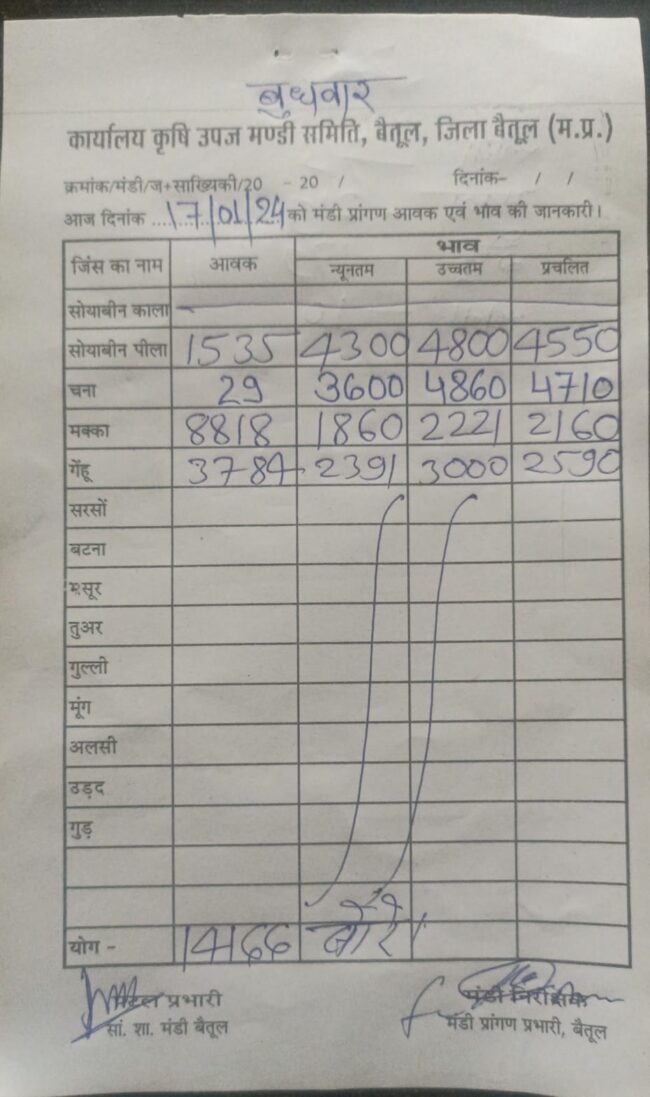 बुधवार
कार्यालय कृषि उपज मण्डी समिति, बैतूल, जिला बैतूल (म.प्र.)
क्रमांक/मंडी/ज+साख्यिकी/20 - 20 / दिनांक- / /
आज दिनांक ....17/01/24 को मंडी प्रांगण आवक एवं भाव की जानकारी।
जिंस का नाम आवक भाव
न्यूनतम उच्चतम प्रचलित
सोयाबीन काला -
सोयाबीन पीला 1535 4300 4800 4550
चना 29 3600 4860 4710
मक्का 8818 1860 2221 2160
गेंहू 3784 2391 3000 2590
सरसों
बटना
मसूर
तुअर
गुल्ली
मूंग
अलसी
उड़द
गुड़
योग - 14166 बोरे
प्रभारी मंडी निरीक्षक
सां. शा. मंडी बैतूल मंडी प्रांगण प्रभारी, बैतूल